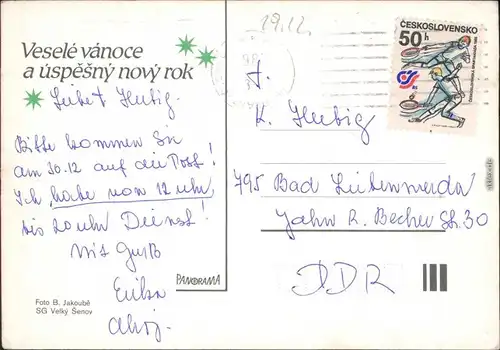 Veselé vánoce
a úspěšný nový rok
19.12.
ČESKOSLOVENSKO
50 h
Liebe Fam. Herbig
Bitte kommen Sie
am 30.12 auf die Post!
Ich habe von 12 Uhr
bis 20 Uhr Dienst!
Mit Gruß
Erika
Ahoj.
K. Herbig
795 Bad Liebenwerda
Jahn R. Becher Str. 30
DDR
PANORAMA
Foto B. Jakoubě
SG Velký Šenov